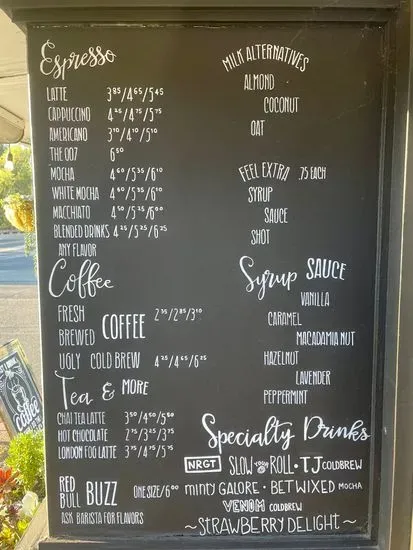 Espresso
LATTE 3⁸⁵/4⁶⁵/5⁴⁵
CAPPUCCINO 4²⁵/4⁷⁵/5⁷⁵
AMERICANO 3¹⁰/4¹⁰/5¹⁰
THE 007 6⁵⁰
MOCHA 4⁶⁰/5³⁵/6¹⁰
WHITE MOCHA 4⁶⁰/5³⁵/6¹⁰
MACCHIATO 4⁵⁰/5²⁵/6⁰⁰
BLENDED DRINKS 4²⁵/5²⁵/6²⁵
ANY FLAVOR
Coffee
FRESH BREWED COFFEE 2³⁵/2⁸⁵/3¹⁰
UGLY COLD BREW 4²⁵/4⁶⁵/6²⁵
Tea & MORE
CHAI TEA LATTE 3⁵⁰/4⁵⁰/5⁵⁰
HOT CHOCOLATE 2⁷⁵/3²⁵/3⁷⁵
LONDON FOG LATTE 3⁷⁵/4⁷⁵/5⁷⁵
RED BULL BUZZ ONE SIZE/6⁰⁰
ASK BARISTA FOR FLAVORS
MILK ALTERNATIVES
ALMOND
COCONUT
OAT
FEEL EXTRA .75 EACH
SYRUP
SAUCE
SHOT
Syrup SAUCE
VANILLA
CARAMEL
MACADAMIA NUT
HAZELNUT
LAVENDER
PEPPERMINT
Specialty Drinks
NRGT SLOW YOUR ROLL • TJ COLDBREW
MINTY GALORE • BETWIXED MOCHA
VENOM COLDBREW
~STRAWBERRY DELIGHT~
coffee